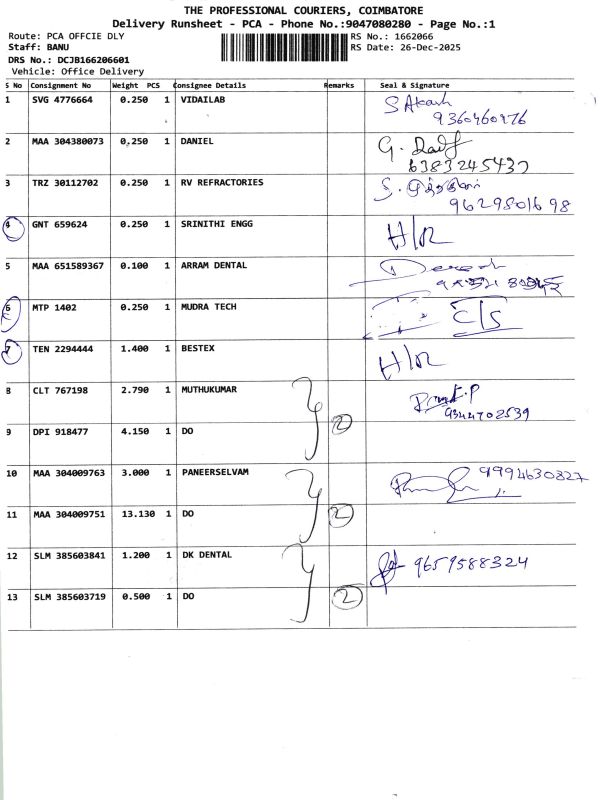 THE PROFESSIONAL COURIERS, COIMBATORE
Delivery Runsheet - PCA - Phone No.:9047080280 - Page No.:1
Route: PCA OFFCIE DLY RS No.: 1662066
Staff: BANU RS Date: 26-Dec-2025
DRS No.: DCJB166206601
Vehicle: Office Delivery
S No Consignment No Weight PCS Consignee Details Remarks Seal & Signature
1 SVG 4776664 0.250 1 VIDAILAB S Akash
9360460976
2 MAA 304380073 0.250 1 DANIEL G.
6383245437
3 TRZ 30112702 0.250 1 RV REFRACTORIES
9629801698
4 GNT 659624 0.250 1 SRINITHI ENGG H/R
5 MAA 651589367 0.100 1 ARRAM DENTAL
6 MTP 1402 0.250 1 MUDRA TECH C/S
7 TEN 2294444 1.400 1 BESTEX H/R
8 CLT 767198 2.790 1 MUTHUKUMAR
9344702539
9 DPI 918477 4.150 1 DO 2
10 MAA 304009763 3.000 1 PANEERSELVAM 9994630827
11 MAA 304009751 13.130 1 DO 2
12 SLM 385603841 1.200 1 DK DENTAL 9659588324
13 SLM 385603719 0.500 1 DO 2